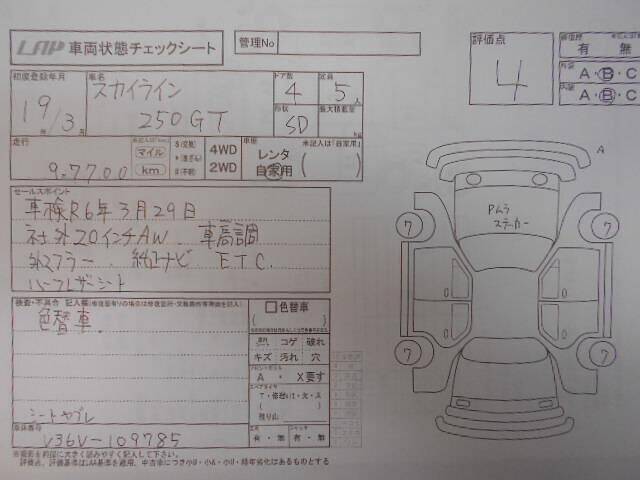 LAP 車両状態チェックシート
管理No
評価点
4
有 無
A・B・C
A・B・C
初度登録年月
19年/3月
車名
スカイライン
250GT
ドア数
4
定員
5人
形状
SD
最大積載量
kg
走行
9.7700
マイル
km
4WD
2WD
車歴
レンタ
自家用
未記入は「自家用」
セールスポイント
車検R6年3月29日
社外20インチAW 車高調
外マフラー 純正ナビ ETC
ハーフレザーシート
検査・不具合 記入欄
色替車
色替車
コゲ 破れ
キズ 汚れ 穴
A ・ X要す
残り山
有・無 有・無
シートヤブレ
車体番号
V36V-109785
A
Pムラ
ステッカー
7 7
7 7